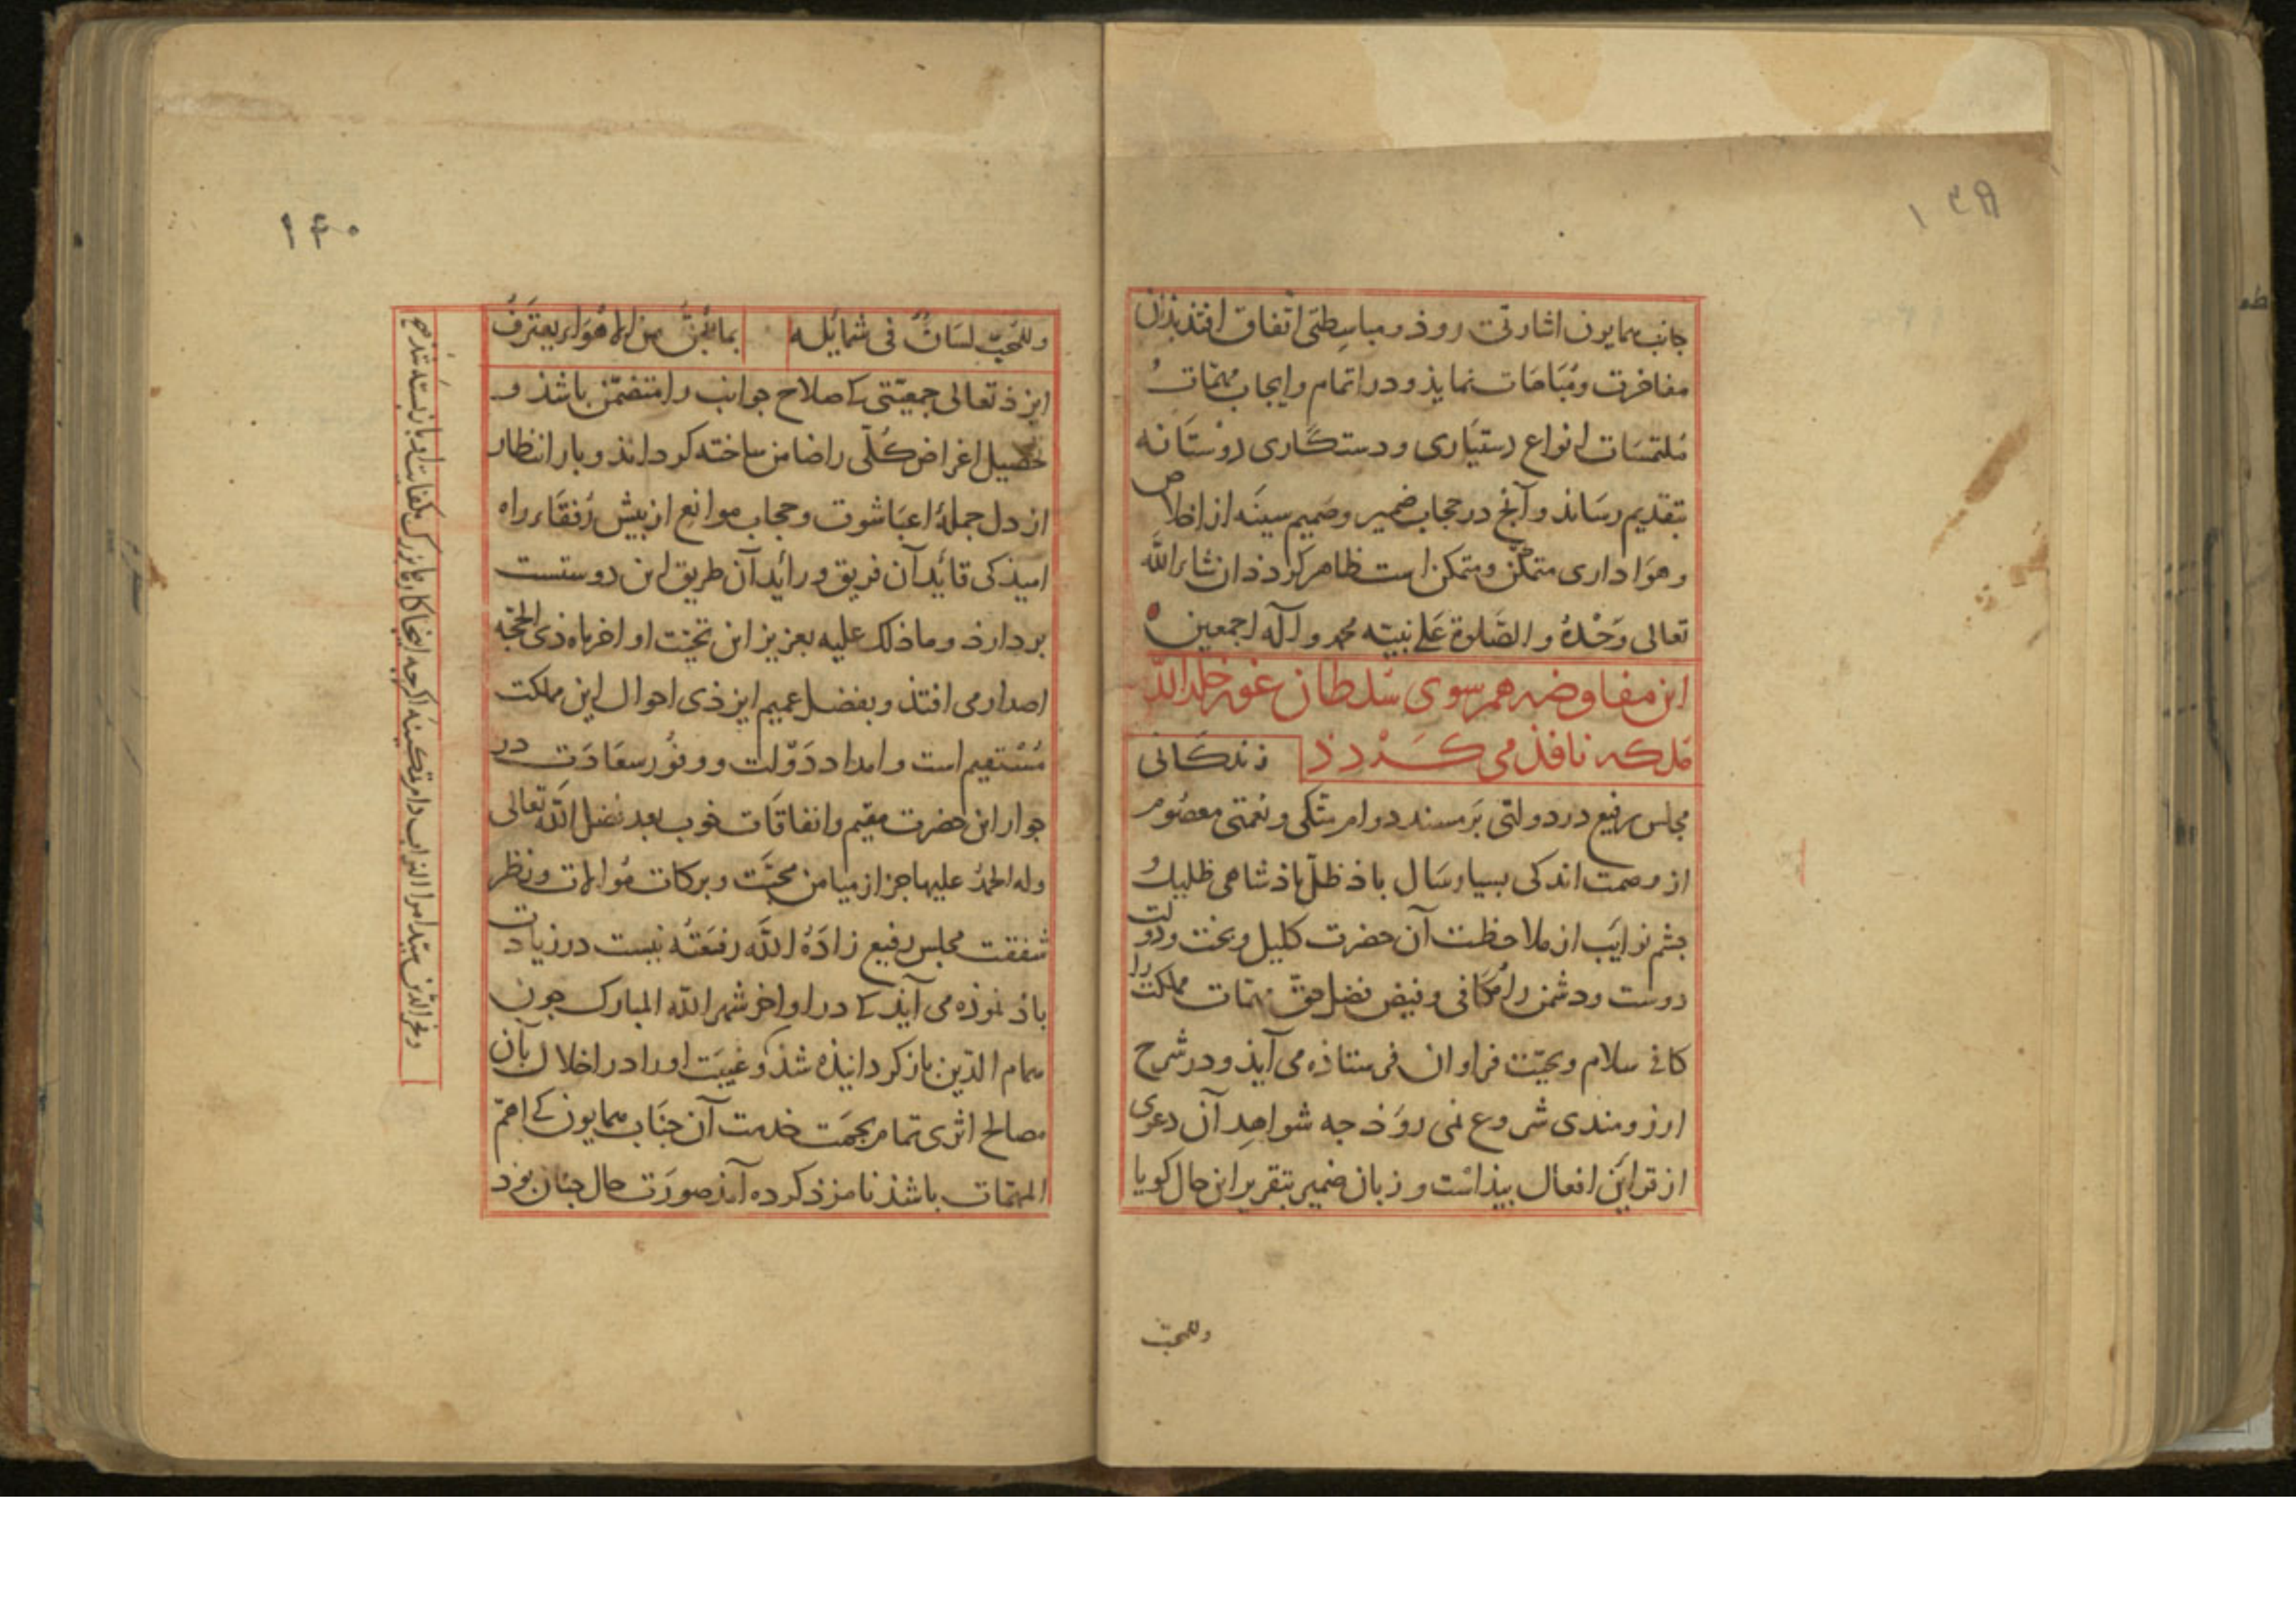 ۱۳۹
جانب همایون اشارتی روذ و مباسطتی اتفاق افتذ بذان
مفاخرت و مُبَاهَات نمایذ و در اتمام و ایجاب مهمّات و
مُلتمَسَات انواع دستیَاری و دستکاری دوستَانه
بتقدیم رسَانذ و آنچ در حجاب ضمیر و صَمیم سینَه از اخلاص
و هوَاداری متمکّن است ظاهر کرد ذ ان شاء الله
تعالی وَحْدهُ و الصَّلوة عَلی نبیّه محمد و آله اجمعین
این مفاوضه هم سوی سُلطان غور خلد الله
مُلکه نافذ می کَردد
زندکَانی
مجلس رفیع در دولتی بَر مسند دوام متّکی و نعمتی معصُوم
از وصمت اندکی بسیار سَال باذ ظلّ باذشاهی ظلیل و
چشم نوایَب از ملاحظت آن حضرت کلیل و بخت و دولت
دوست و دشمن را مُکافی و فیض فضل حقّ مهمّات مملکت را
کافی سلام و تحیّت فراوان فرستاذه می آیذ و در شرح
ارزومندی شروع نمی روَذ چه شواهِد آن دعوی
از قراین افعال بیذاست و زبان ضمیر بتقریر این حال کویا
وللمحبّ
۱۴۰
وللمحبّ لسَانٌ فی شمایُله
بما یُجنّ من الاهوَاء یعترفُ
ایزذ تعالی جمعیّتی کی صلاح جوانب را متضمّن باشذ و
تحصیل اغراض کُلّی را ضامن ساخته کرداناذ و بار انتظار
از دل جملهٔ اعبَا شوق و حجاب موانع از بیش رُفقَاء راه
امیذ کی قایُد آن فریق و رایُد آن طریق این دوستست
بردارذ و ما ذلک علیه بعزیز این تحیّت اواخر ماه ذی الحجّه
اصدار می افتذ و بفضل عمیم ایزذی احوال این مملکت
مُسْتقیم است و امداد دَوْلت و وفُور سعَادَت در
جوار این حضرت مقیم و اتفاقَات خوب بعد فضل الله تعالی
وله الحمدُ علیها جز از میامن محبّت و برکات مُوالات و نظر
شفقت مجلس رفیع زادَهُ اللهَ رفعَتُه نیست در زیادت
باذ نموذه می آیذ کی در اواخر شهر الله المبارک چون
همام الدّین باز کردانیذه شذ و غیبَت او را در اخلال بآن
مصالح اثری تمام بجهَت خدمت آن جنَاب همایون کی اهمّ
المهمّات باشذ نامزذ کرده آمذ صورَت حال چنان بوذ